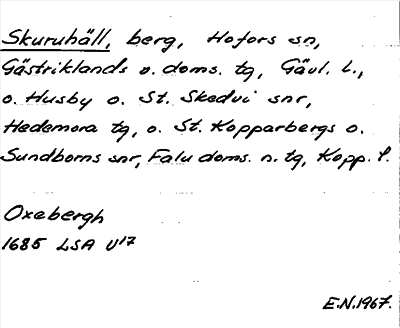 Skuruhäll, berg, Hofors sn,
Gästriklands ö. doms. tg, Gävl. l.,
o. Husby o. St. Skedvi snr,
Hedemora tg, o. St. Kopparbergs o.
Sundborns snr, Falu doms. n. tg, Kopp. l.
Oxebergh
1685 LSA U17
E.N.1967.